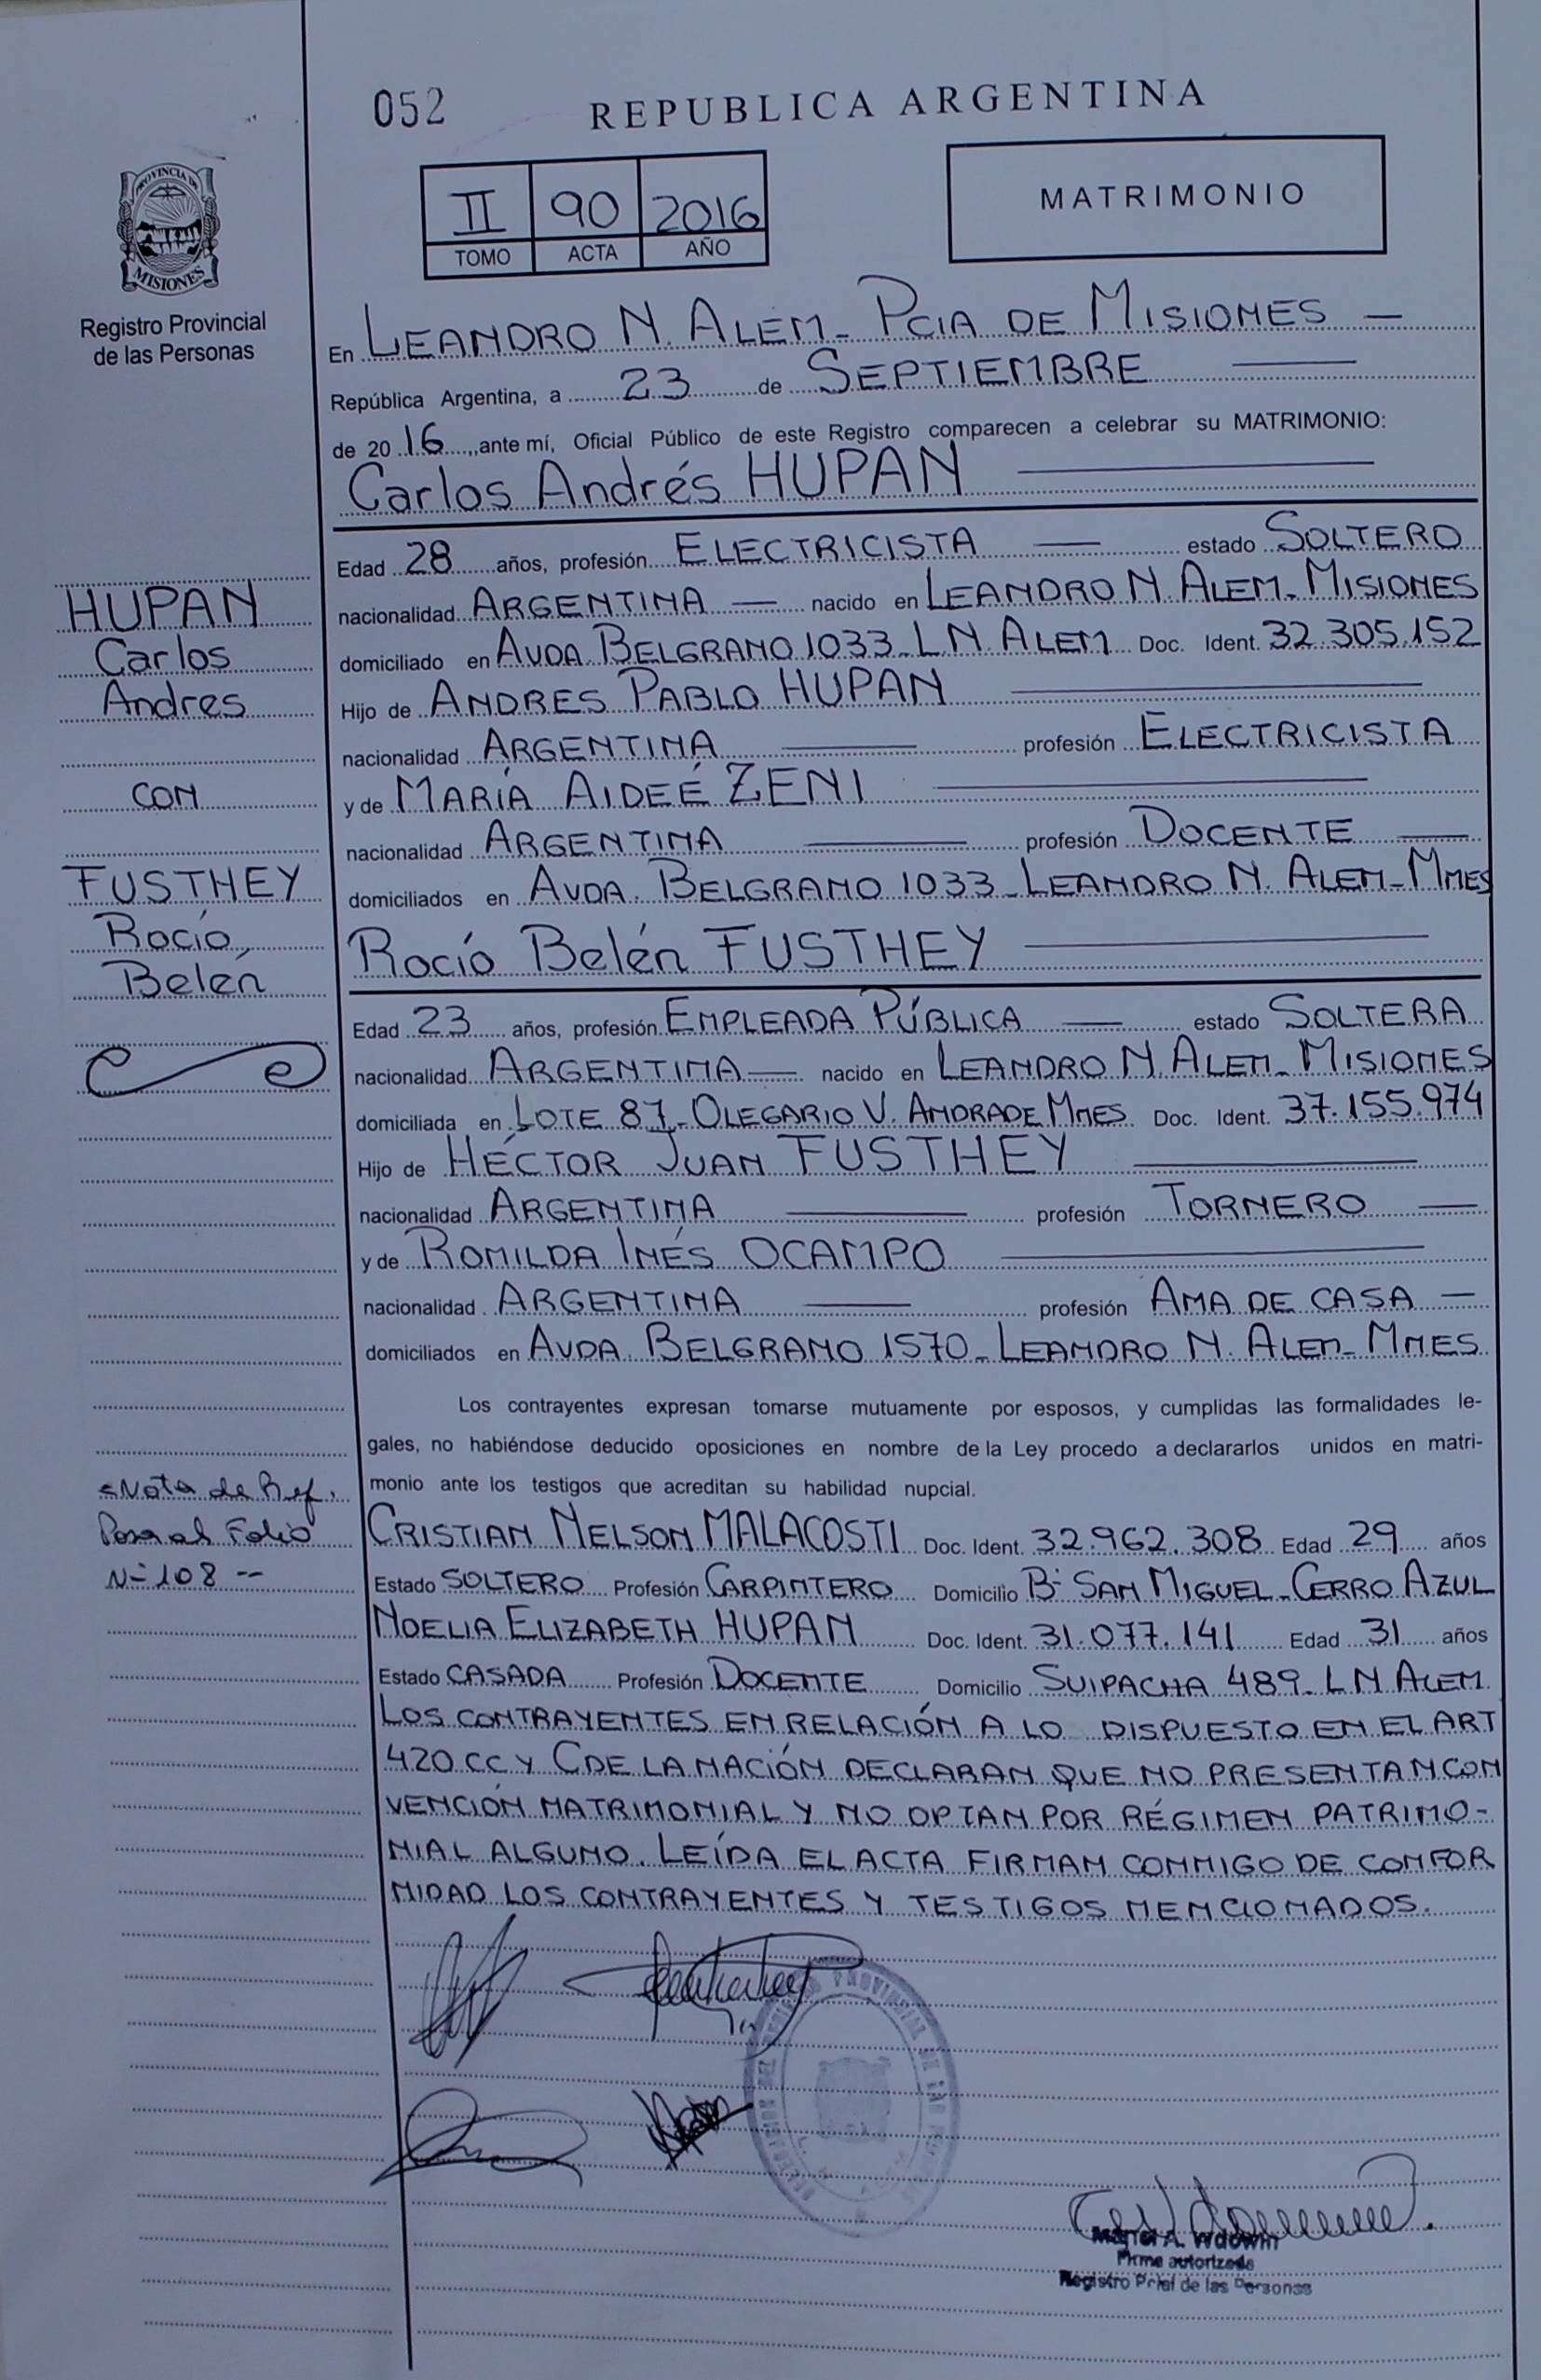 052
REPUBLICA ARGENTINA
II 90 2016
TOMO ACTA AÑO
MATRIMONIO
PROVINCIA DE
MISIONES
Registro Provincial
de las Personas
En LEANDRO N. ALEM - PCIA DE MISIONES —
República Argentina, a 23 de SEPTIEMBRE
de 2016, ante mí, Oficial Público de este Registro comparecen a celebrar su MATRIMONIO:
Carlos Andrés HUPAN
Edad 28 años, profesión ELECTRICISTA — estado SOLTERO
nacionalidad ARGENTINA — nacido en LEANDRO N. ALEM - MISIONES
domiciliado en AVDA BELGRANO 1033 - L N. ALEM Doc. Ident. 32.305.152
Hijo de ANDRES PABLO HUPAN
nacionalidad ARGENTINA profesión ELECTRICISTA
y de MARÍA AIDEÉ ZENI
nacionalidad ARGENTINA profesión DOCENTE
domiciliados en AVDA. BELGRANO 1033 - LEANDRO N. ALEM - MNES
Rocío Belén FUSTHEY
Edad 23 años, profesión EMPLEADA PÚBLICA — estado SOLTERA
nacionalidad ARGENTINA — nacido en LEANDRO N. ALEM - MISIONES
domiciliada en LOTE 87 - OLEGARIO V. ANDRADE MNES Doc. Ident. 37.155.974
Hijo de HÉCTOR JUAN FUSTHEY
nacionalidad ARGENTINA profesión TORNERO —
y de ROMILDA INÉS OCAMPO
nacionalidad ARGENTINA profesión AMA DE CASA —
domiciliados en AVDA. BELGRANO 1570 - LEANDRO N. ALEM - MNES
Los contrayentes expresan tomarse mutuamente por esposos, y cumplidas las formalidades le-
gales, no habiéndose deducido oposiciones en nombre de la Ley procedo a declararlos unidos en matri-
monio ante los testigos que acreditan su habilidad nupcial.
CRISTIAN NELSON MALACOSTI Doc. Ident. 32.962.308 Edad 29 años
Estado SOLTERO Profesión CARPINTERO Domicilio B° SAN MIGUEL - CERRO AZUL
NOELIA ELIZABETH HUPAN Doc. Ident. 31.077.141 Edad 31 años
Estado CASADA Profesión DOCENTE Domicilio SUIPACHA 489 - L N ALEM
LOS CONTRAYENTES EN RELACIÓN A LO DISPUESTO EN EL ART
420 CC Y C DE LA NACIÓN DECLARAN QUE NO PRESENTAN CON
VENCIÓN MATRIMONIAL Y NO OPTAN POR RÉGIMEN PATRIMO-
NIAL ALGUNO. LEÍDA EL ACTA FIRMAN CONMIGO DE CONFOR
MIDAD LOS CONTRAYENTES Y TESTIGOS MENCIONADOS.
HUPAN
Carlos
Andres
CON
FUSTHEY
Rocío
Belén
Nota de Ref.
Pasa al Folio
N° 108 --
PROVINCIAL DE LAS
A. Wdowin
Firma autorizada
Registro Pcial de las Personas